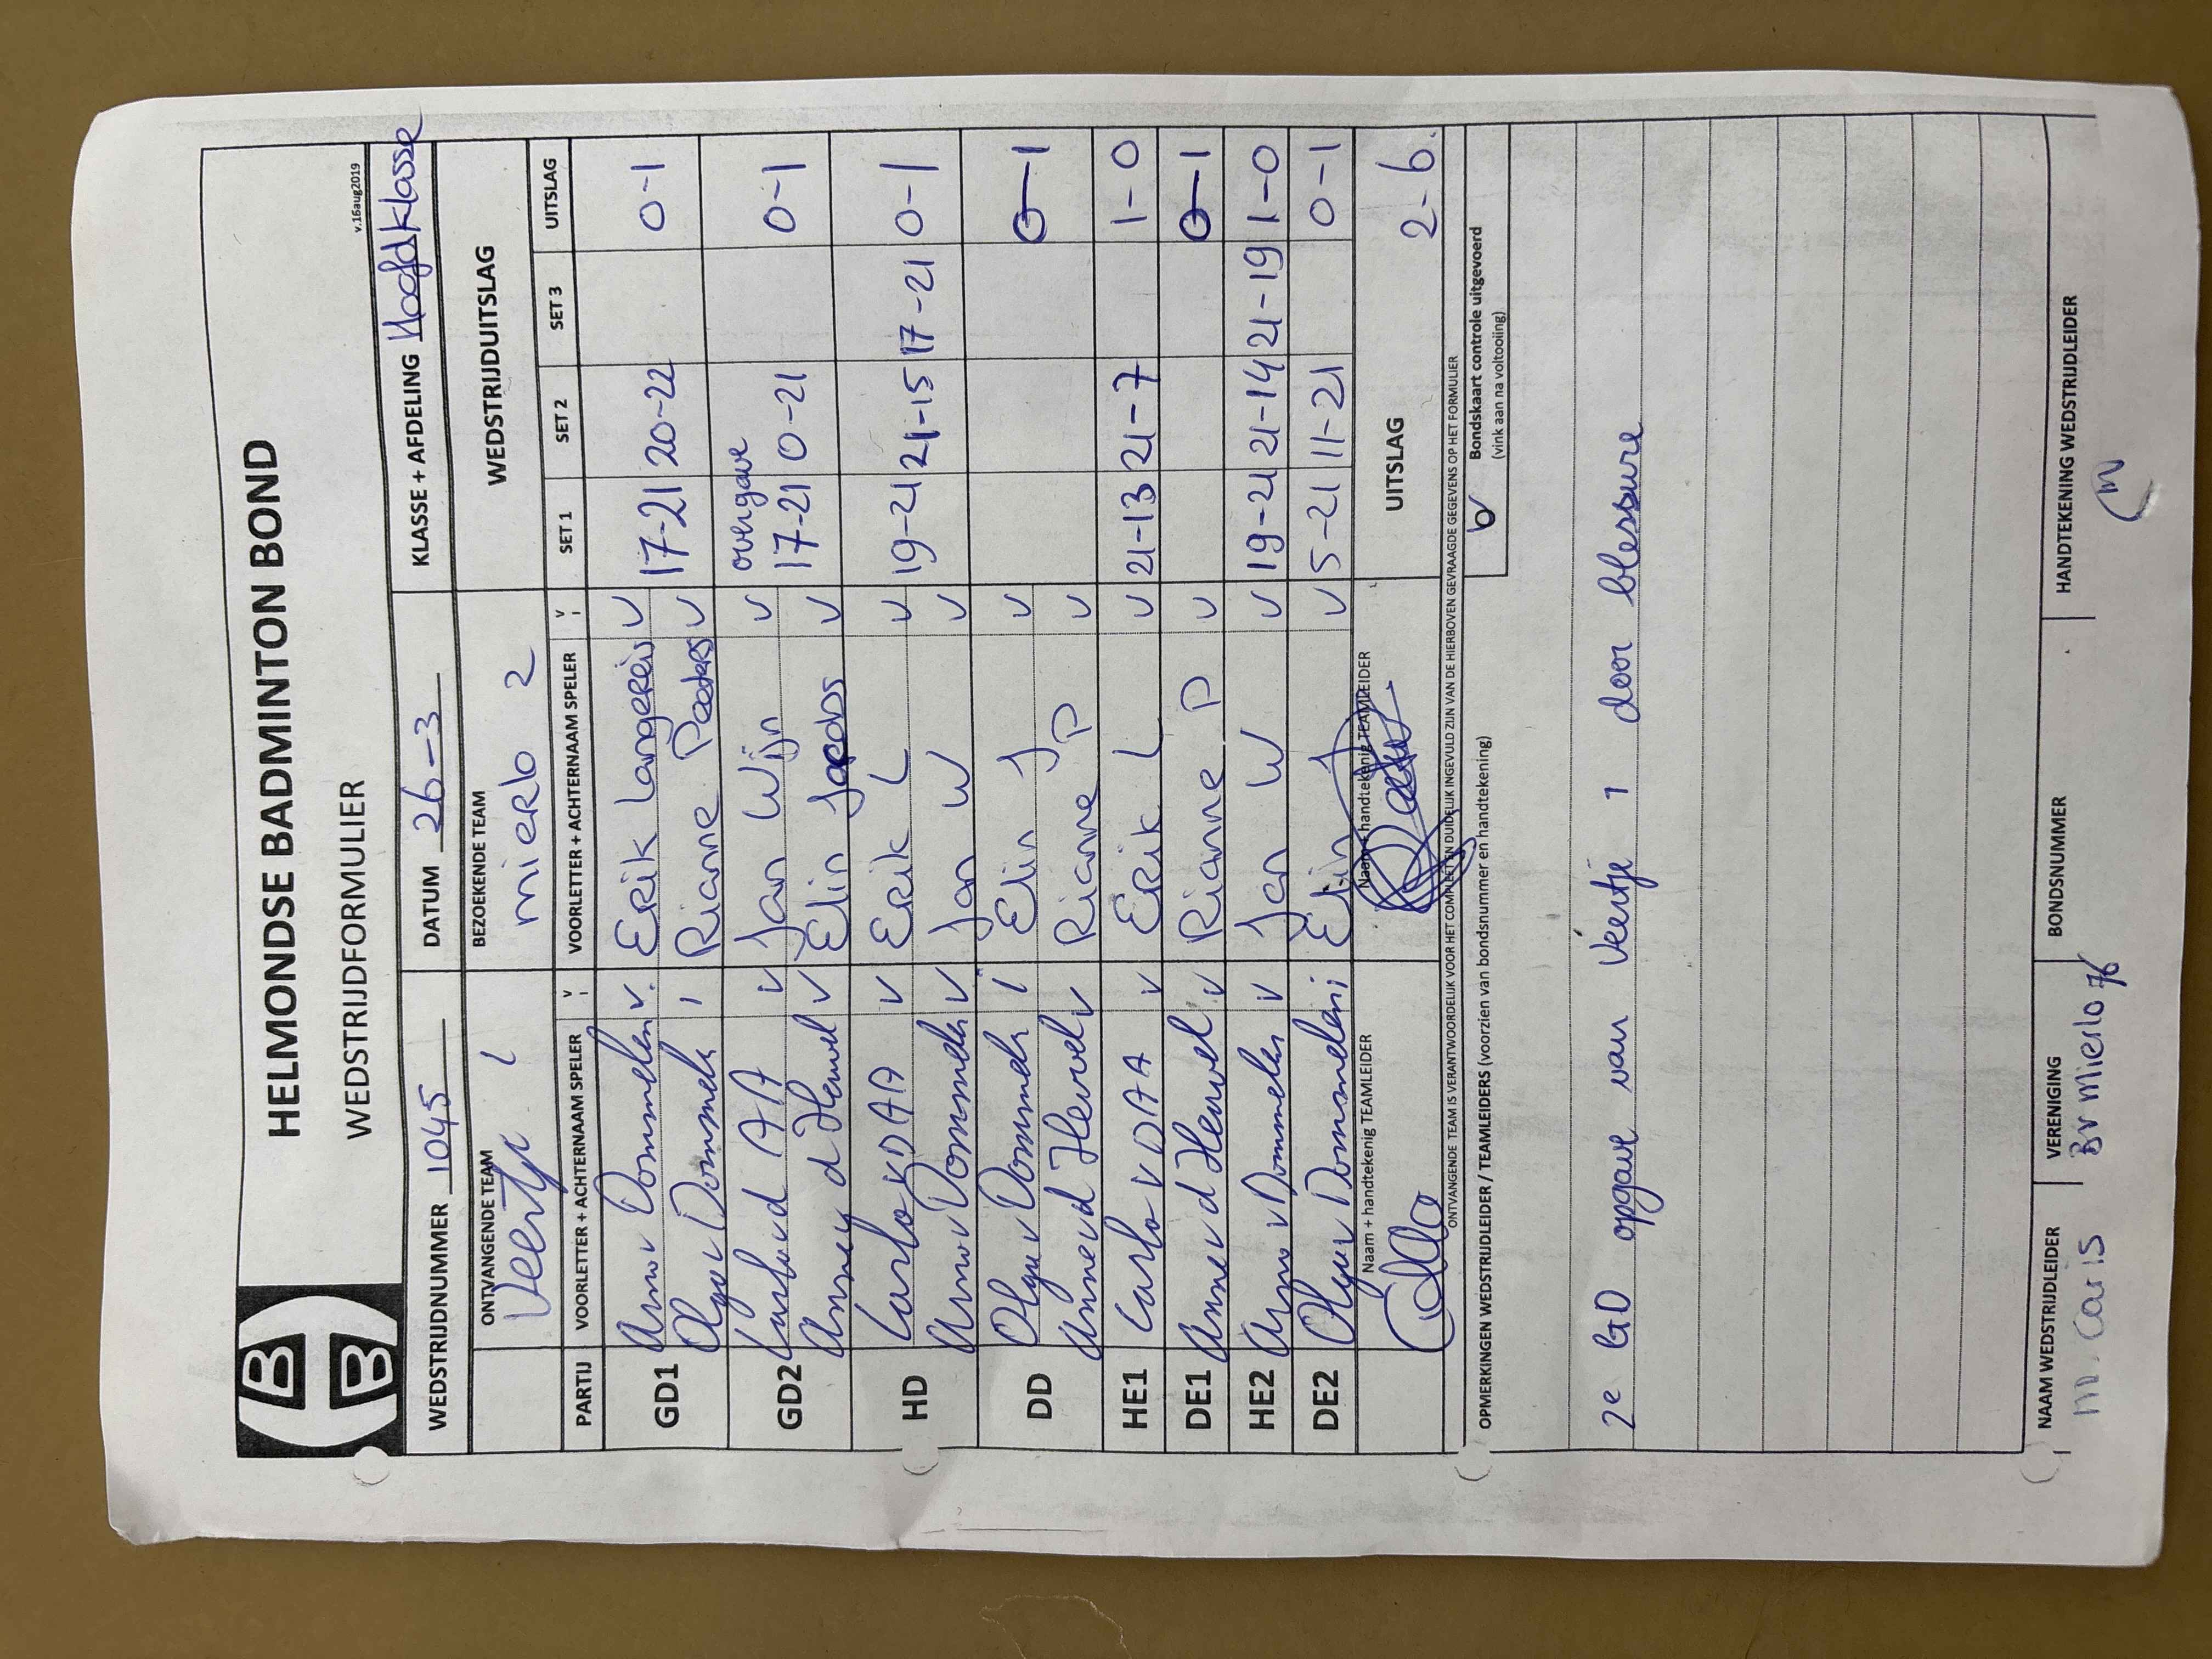 HELMONDSE BADMINTON BOND
v.16aug2019
WEDSTRIJDFORMULIER
WEDSTRIJDNUMMER 1045 DATUM 26-3 KLASSE + AFDELING Hoofdklasse
ONTVANGENDE TEAM BEZOEKENDE TEAM WEDSTRIJDUITSLAG
Veertje 1 mierlo 2
PARTIJ VOORLETTER + ACHTERNAAM SPELER V VOORLETTER + ACHTERNAAM SPELER V SET 1 SET 2 SET 3 UITSLAG
GD1 Arno v Dommelen v Erik Langereis v 17-21 20-22 0-1
Olga v Dommelen Rianne Peeters v
GD2 Carlo v d AA v Jan Wijn v overgave 17-21 0-21 0-1
Anne v d Heuvel v Elin Jacobs v
HD Carlo v DAA v Erik L v 19-21 21-15 17-21 0-1
Arno v Dommelen v Jan W v
DD Olga v Dommelen Elin J v 0-1
Anne v d Heuvel v Rianne P v
HE1 Carlo v DAA v Erik L v 21-13 21-7 1-0
DE1 Anne v d Heuvel v Rianne P v 0-1
HE2 Arno v Dommelen v Jan W v 19-21 21-14 21-19 1-0
DE2 Olga v Dommelen Elin J v 5-21 11-21 0-1
Naam + handtekenig TEAMLEIDER Naam + handtekenig TEAMLEIDER UITSLAG 2-6.
ONTVANGENDE TEAM IS VERANTWOORDELIJK VOOR HET COMPLEET EN DUIDELIJK INGEVULD ZIJN VAN DE HIERBOVEN GEVRAAGDE GEGEVENS OP HET FORMULIER
OPMERKINGEN WEDSTRIJDLEIDER / TEAMLEIDERS (voorzien van bondsnummer en handtekening)
Bondskaart controle uitgevoerd
(vink aan na voltooiing)
2e GD opgave van Veertje 1 door blessure
NAAM WEDSTRIJDLEIDER VERENIGING BONDSNUMMER HANDTEKENING WEDSTRIJDLEIDER
m. Caris BV Mierlo 76